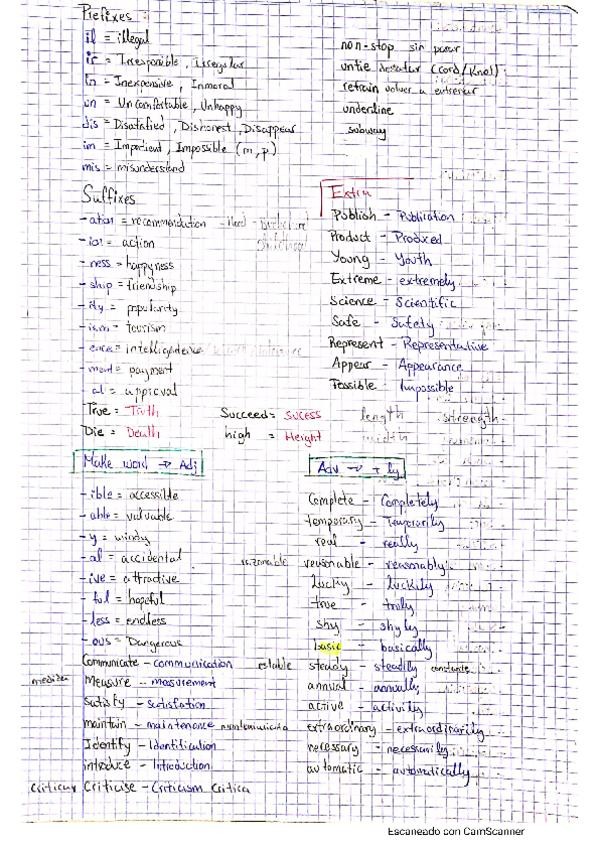 Prefixes :
il = illegal
ir = Irresponsible, Irregular
In = Inexpensive, Inmoral
un = Uncomfortable, Unhappy
dis = Disatisfied, Dishonest, Disappear
im = Impatient, Impossible (m,p)
mis = misunderstand
non-stop sin parar
untie desatar (cord/knot)
retrain volver a entrenar
underline
subway
Suffixes
-ation = recommendation - Hood -
-ion = action
-ness = happyness
-ship = friendship
-ity = popularity
-ism = tourism
-ence = intelligence
-ment = payment
al = approval
True = Truth
Die = Death
Succeed = Sucess
high = Height
length strength
width
Extra
Publish - Publication
Product - Produced
Young - Youth
Extreme - extremely
Science - Scientific
Safe - Safety
Represent - Representative
Appear - Appearance
Possible - Impossible
Make word → Adj
-ible = accessible
-able = valuable
-y = windy
-al = accidental
-ive = attractive
-ful = hopeful
-less = endless
-ous = Dangerous
Communicate - communication
medida Measure - measurement
Satisfy - satisfation
maintain - maintenence
Identify - Identification
introduce - Introduction
criticar Criticise - Criticism Critica
Adv → + ly
Complete - Completely
temporary - Temporarily
real - really
razonable reasonable - reasonably
lucky - luckily
true - truly
shy - shyly
basic - basically
estable steady - steadily constante
annual - annually
active - activily
extraordinary - extraordinarily
necessary - necessarily
automatic - automatically
Escaneado con CamScanner